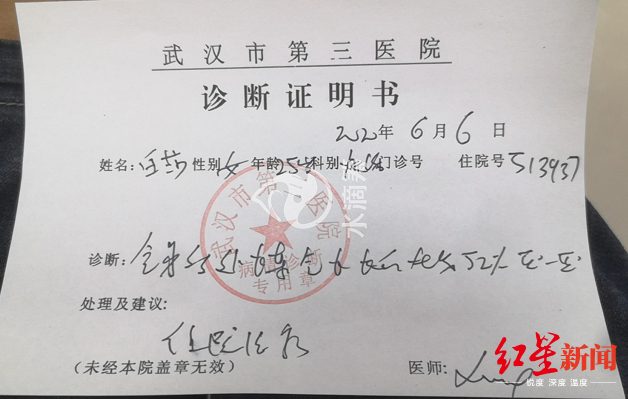 武汉市第三医院
诊断证明书
2020年 6月6日
姓名: 性别 女 年龄 25岁 科别: 门诊号 住院号 513937
诊断: 全身多处
武汉市第三医院
病情诊断
专用章
水滴筹
处理及建议:
住院治疗
(未经本院盖章无效) 医师:
红星新闻
锐度 深度 温度